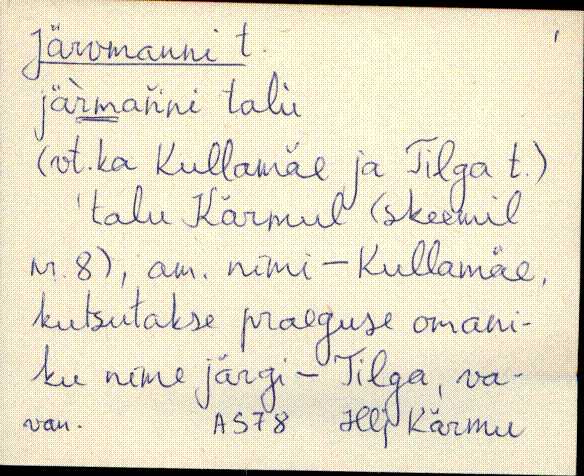 Järvmanni t.
jä̀rmańni talù
(vt.ka Kullamäe ja Tilga t.)
'talu Kärmul (skeemil
nr. 8), am. nimi – Kullamäe,
kutsutakse praeguse omani-
ku nime järgi – Tilga, va-
van. AS78 Hlj Kärmu